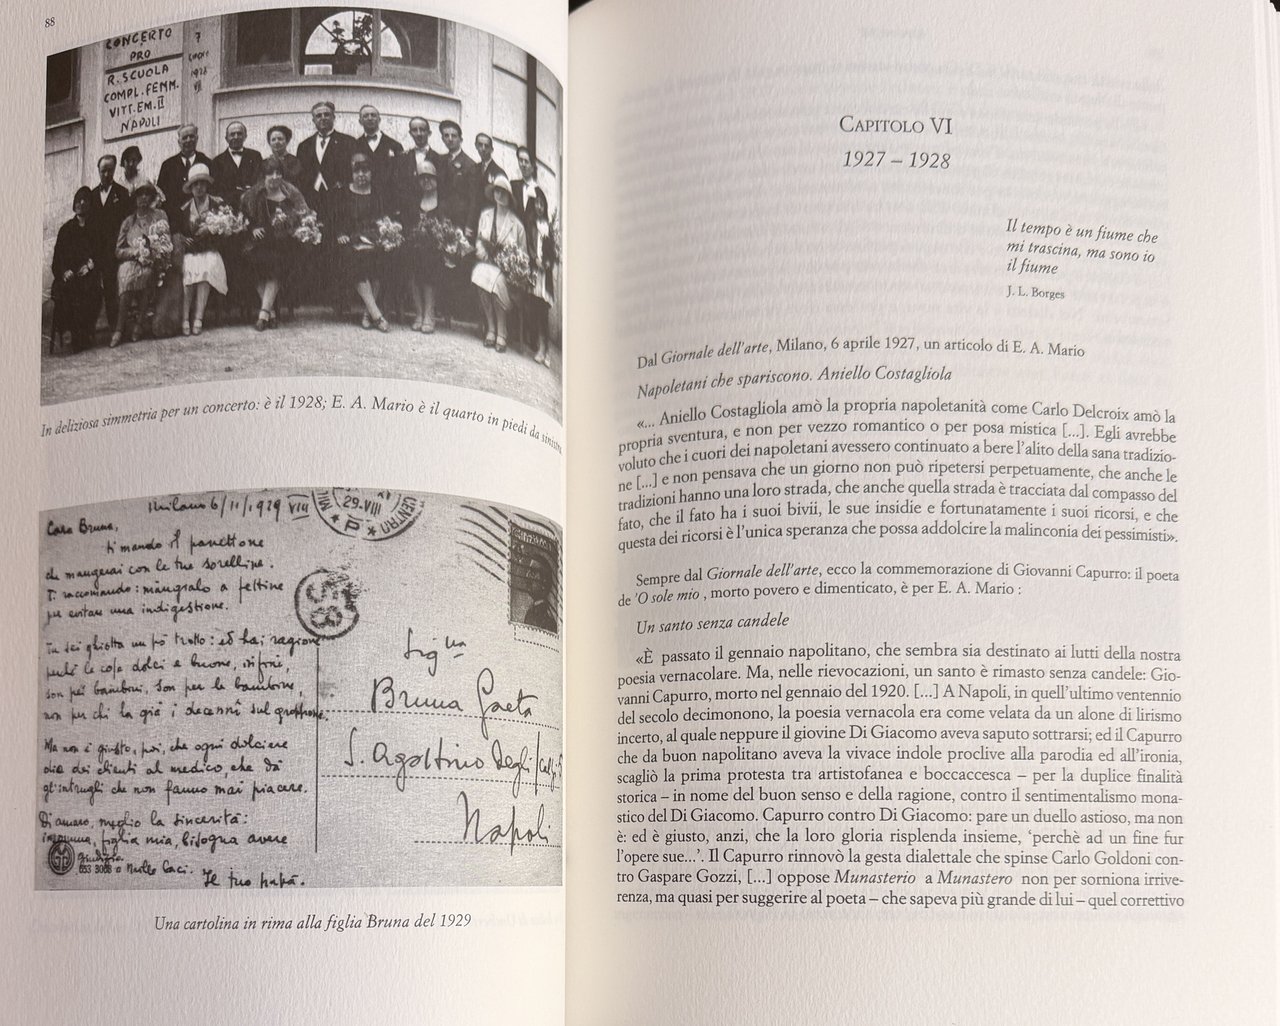 88
CONCERTO
PRO
R. SCUOLA
COMPL. FEMM.
VITT. EM. II
NAPOLI
7
1928
In deliziosa simmetria per un concerto: è il 1928; E. A. Mario è il quarto in piedi da sinistra
Milano 6/11/1929 VIII
29.VIII
Cara Bruna,
ti mando il panettone
che mangerai con le tue sorelline.
Ti raccomando: mangialo a fettine
per evitare una indigestione.
Tu sei ghiotta un pò troppo: ed hai ragione
perché le cose dolci e buone, infine,
son pei bambini, son per le bambine,
non per chi ha già i decenni sul groppone.
Ma non è giusto, poi, che ogni dolciere
dia dei clienti al medico, che dà
gl'intrugli che non fanno mai piacere.
Diciamo, meglio la sincerità:
insomma, figlia mia, bisogna avere
giudizio e Mille baci. Il tuo papà.
653 3068
Sig.na
Bruna Gaeta
S. Agostino degli
Napoli
Una cartolina in rima alla figlia Bruna del 1929
CAPITOLO VI
1927 – 1928
Il tempo è un fiume che
mi trascina, ma sono io
il fiume
J. L. Borges
Dal Giornale dell'arte, Milano, 6 aprile 1927, un articolo di E. A. Mario
Napoletani che spariscono. Aniello Costagliola
«... Aniello Costagliola amò la propria napoletanità come Carlo Delcroix amò la
propria sventura, e non per vezzo romantico o per posa mistica [...]. Egli avrebbe
voluto che i cuori dei napoletani avessero continuato a bere l'alito della sana tradizio-
ne [...] e non pensava che un giorno non può ripetersi perpetuamente, che anche le
tradizioni hanno una loro strada, che anche quella strada è tracciata dal compasso del
fato, che il fato ha i suoi bivii, le sue insidie e fortunatamente i suoi ricorsi, e che
questa dei ricorsi è l'unica speranza che possa addolcire la malinconia dei pessimisti».
Sempre dal Giornale dell'arte, ecco la commemorazione di Giovanni Capurro: il poeta
de 'O sole mio , morto povero e dimenticato, è per E. A. Mario :
Un santo senza candele
«È passato il gennaio napolitano, che sembra sia destinato ai lutti della nostra
poesia vernacolare. Ma, nelle rievocazioni, un santo è rimasto senza candele: Gio-
vanni Capurro, morto nel gennaio del 1920. [...] A Napoli, in quell'ultimo ventennio
del secolo decimonono, la poesia vernacola era come velata da un alone di lirismo
incerto, al quale neppure il giovine Di Giacomo aveva saputo sottrarsi; ed il Capurro
che da buon napolitano aveva la vivace indole proclive alla parodia ed all'ironia,
scagliò la prima protesta tra artistofanea e boccaccesca – per la duplice finalità
storica – in nome del buon senso e della ragione, contro il sentimentalismo mona-
stico del Di Giacomo. Capurro contro Di Giacomo: pare un duello astioso, ma non
è: ed è giusto, anzi, che la loro gloria risplenda insieme, 'perchè ad un fine fur
l'opere sue...'. Il Capurro rinnovò la gesta dialettale che spinse Carlo Goldoni con-
tro Gaspare Gozzi, [...] oppose Munasterio a Munastero non per sorniona irrive-
renza, ma quasi per suggerire al poeta – che sapeva più grande di lui – quel correttivo